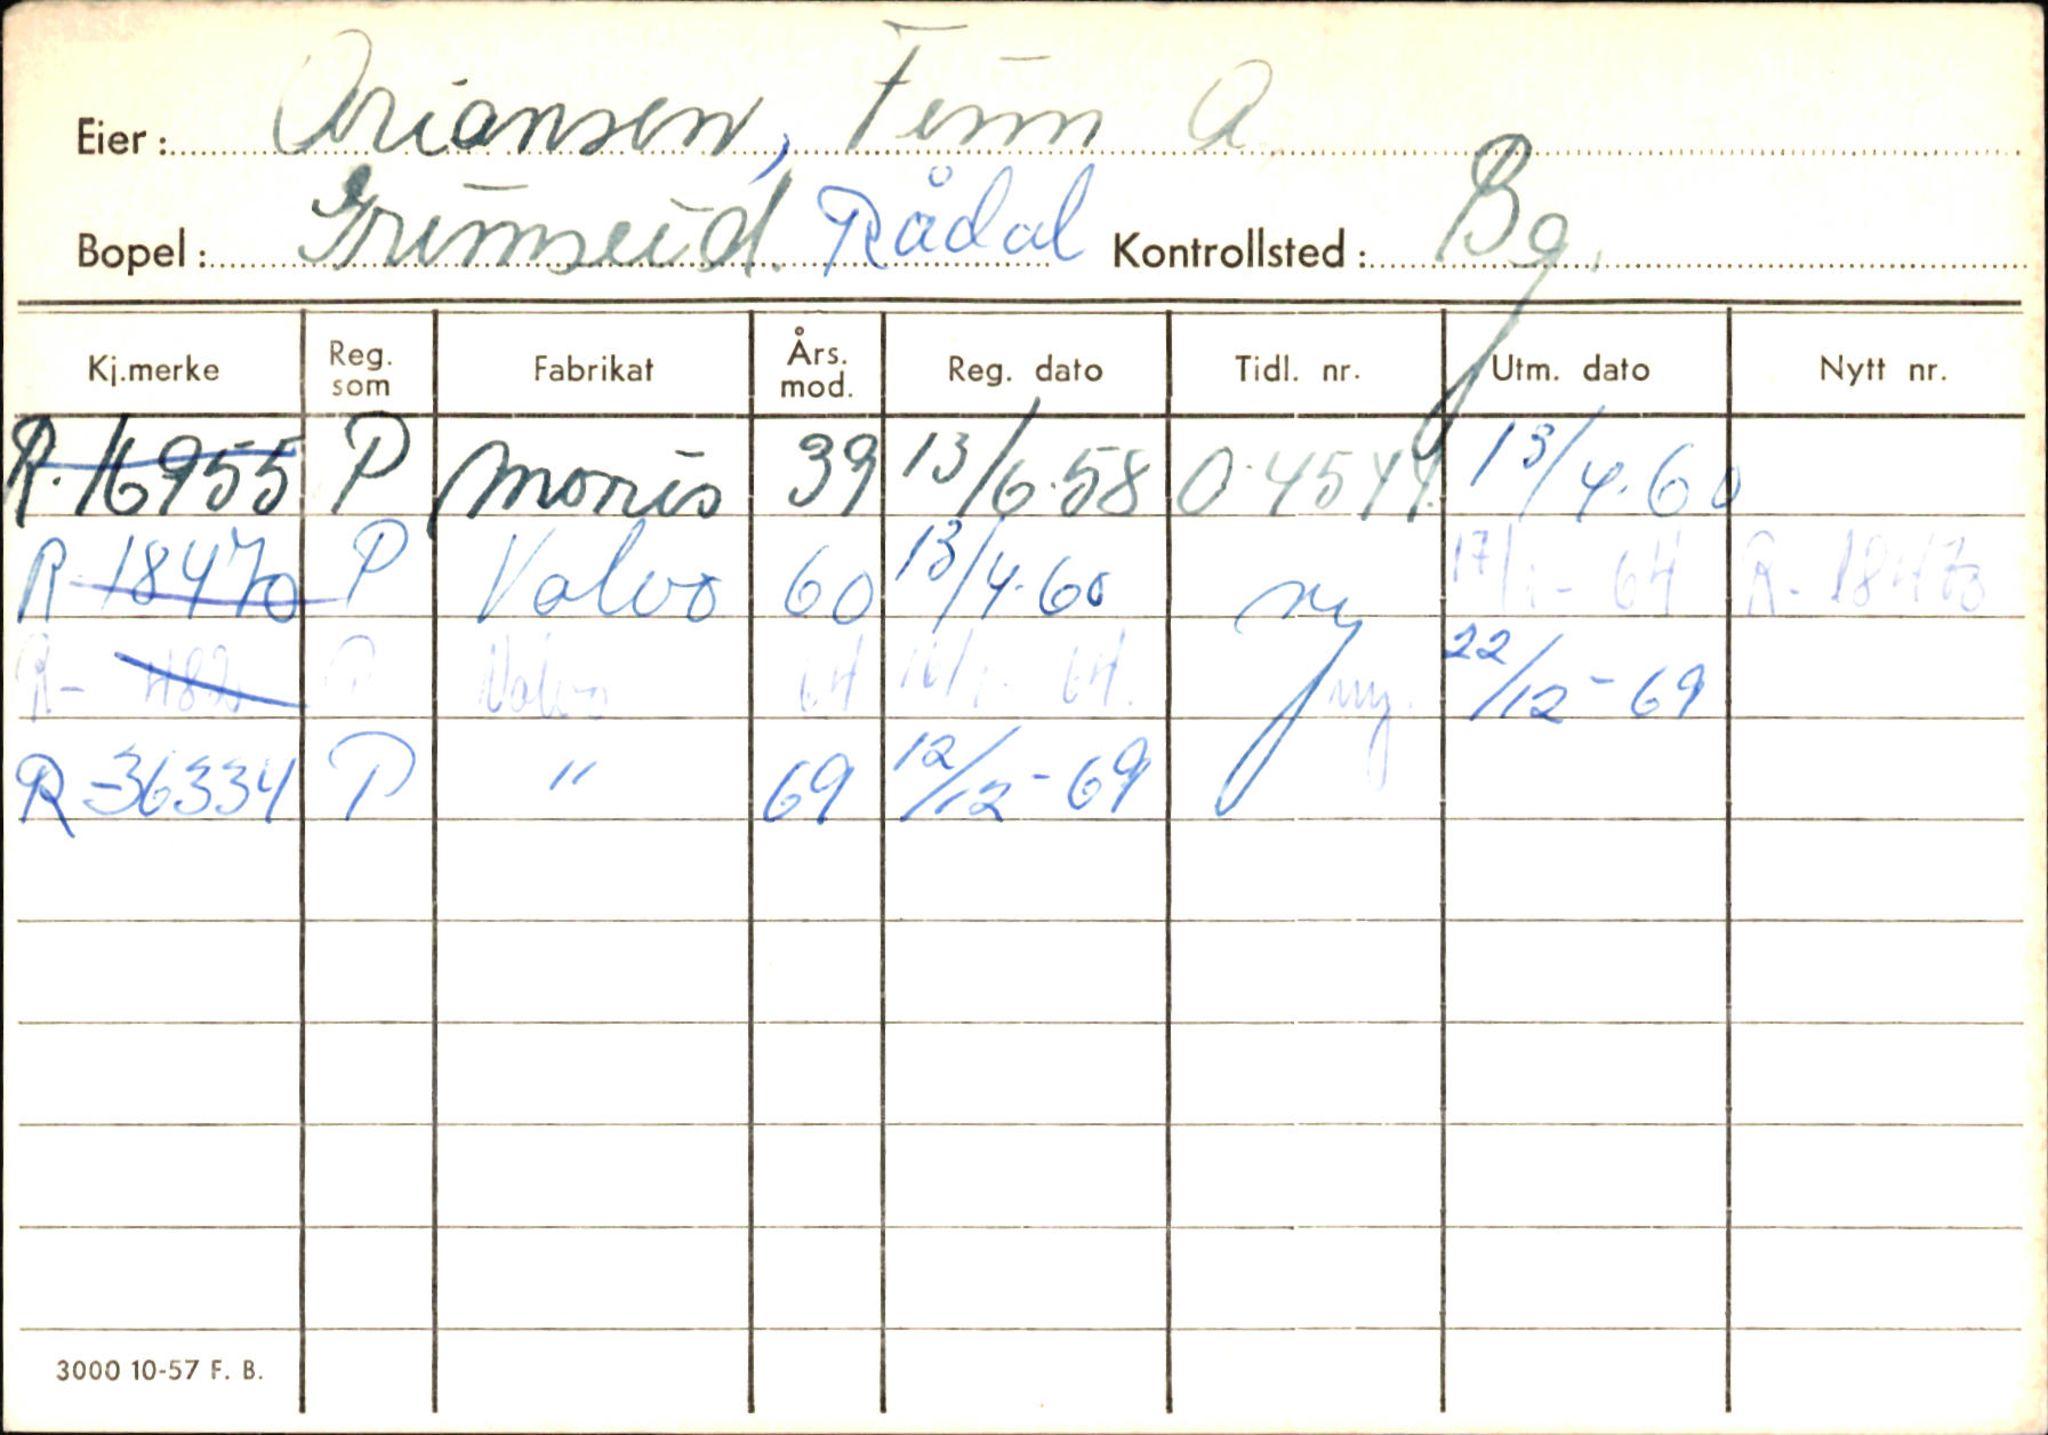 Eier: Ariansen, Finn A
Bopel: Grimseid. Rådal Kontrollsted: Bg.
Kj.merke Reg. som Fabrikat Års. mod. Reg. dato Tidl. nr. Utm. dato Nytt nr.
R.16955 P Morris 39 13/6.58 O.4544. 13/4.60
R-18470 P Volvo 60 13/4.60 ny 17/1-64 R-18470
R- P Volvo 64 16/1-64. ny. 22/12-69
R-36334 P " 69 12/12-69 ny
3000 10-57 F. B.